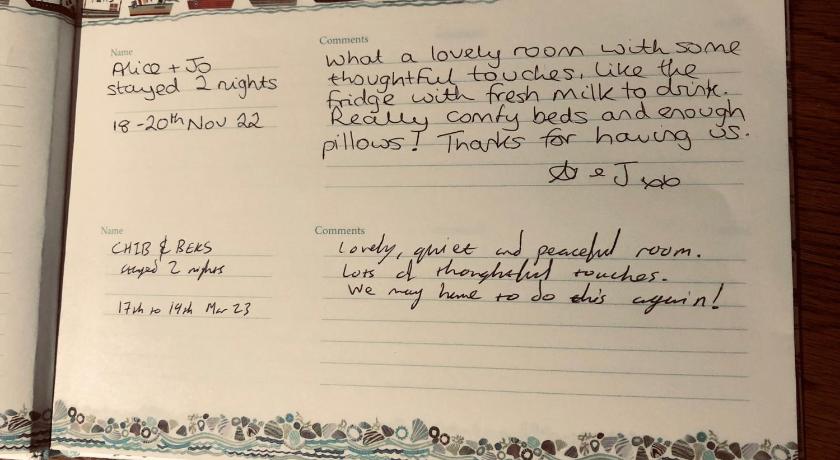 Name
Alice + Jo
stayed 2 nights
18-20th Nov 22
Comments
What a lovely room with some
thoughtful touches, like the
fridge with fresh milk to drink.
Really comfy beds and enough
pillows! Thanks for having us.
A & J
Name
CHIB & BEKS
stayed 2 nights
17th to 19th Mar 23
Comments
Lovely, quiet and peaceful room.
Lots of thoughtful touches.
We may have to do this again!